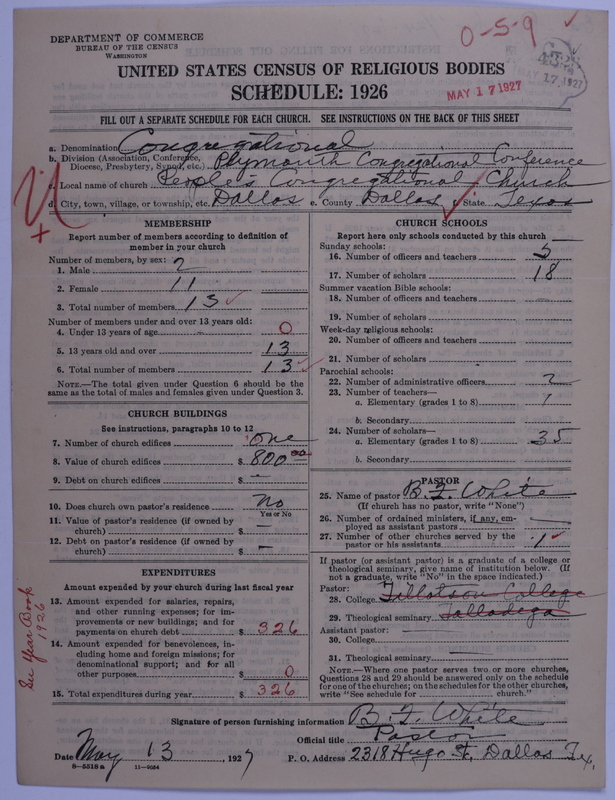 DEPARTMENT OF COMMERCE
BUREAU OF THE CENSUS
WASHINGTON
0-5-9
MAY 17 1927
UNITED STATES CENSUS OF RELIGIOUS BODIES
SCHEDULE: 1926
MAY 17 1927
FILL OUT A SEPARATE SCHEDULE FOR EACH CHURCH. SEE INSTRUCTIONS ON THE BACK OF THIS SHEET
a. Denomination Congregational
b. Division (Association, Conference, Diocese, Presbytery, Synod, etc.) Plymouth Congregational Conference
c. Local name of church People's Congregational Church
d. City, town, village, or township, etc. Dallas e. County Dallas f. State Texas
MEMBERSHIP
Report number of members according to definition of
member in your church
Number of members, by sex:
1. Male 2
2. Female 11
3. Total number of members 13
Number of members under and over 13 years old:
4. Under 13 years of age 0
5. 13 years old and over 13
6. Total number of members 13
NOTE.—The total given under Question 6 should be the
same as the total of males and females given under Question 3.
CHURCH BUILDINGS
See instructions, paragraphs 10 to 12
7. Number of church edifices one
8. Value of church edifices $ 800.00
9. Debt on church edifices $ —
10. Does church own pastor's residence? No
Yes or No
11. Value of pastor's residence (if owned by
church) $ —
12. Debt on pastor's residence (if owned by
church) $ —
EXPENDITURES
Amount expended by your church during last fiscal year
13. Amount expended for salaries, repairs,
and other running expenses; for im-
provements or new buildings; and for
payments on church debt $ 326
14. Amount expended for benevolences, in-
cluding home and foreign missions; for
denominational support; and for all
other purposes $ 0
15. Total expenditures during year $ 326
See Year Book
1926
CHURCH SCHOOLS
Report here only schools conducted by this church
Sunday schools:
16. Number of officers and teachers 5
17. Number of scholars 18
Summer vacation Bible schools:
18. Number of officers and teachers —
19. Number of scholars
Week-day religious schools:
20. Number of officers and teachers
21. Number of scholars
Parochial schools:
22. Number of administrative officers 2
23. Number of teachers—
a. Elementary (grades 1 to 8) 1
b. Secondary
24. Number of scholars—
a. Elementary (grades 1 to 8) 35
b. Secondary
PASTOR
25. Name of pastor B. F. White
(If church has no pastor, write "None")
26. Number of ordained ministers, if any, em-
ployed as assistant pastors —
27. Number of other churches served by the
pastor or his assistants 1
If pastor (or assistant pastor) is a graduate of a college or
theological seminary, give name of institution below. (If
not a graduate, write "No" in the space indicated.)
Pastor:
28. College Tillotson College
29. Theological seminary Talladega
Assistant pastor:
30. College
31. Theological seminary
NOTE.—Where one pastor serves two or more churches,
Questions 28 and 29 should be answered only on the schedule
for one of the churches; on the schedules for the other churches,
write "See schedule for church."
Signature of person furnishing information B. F. White
Official title Pastor
Date May 13, 1927 P. O. Address 2318 Hugo St, Dallas Tex,
8-5518a 11-9034